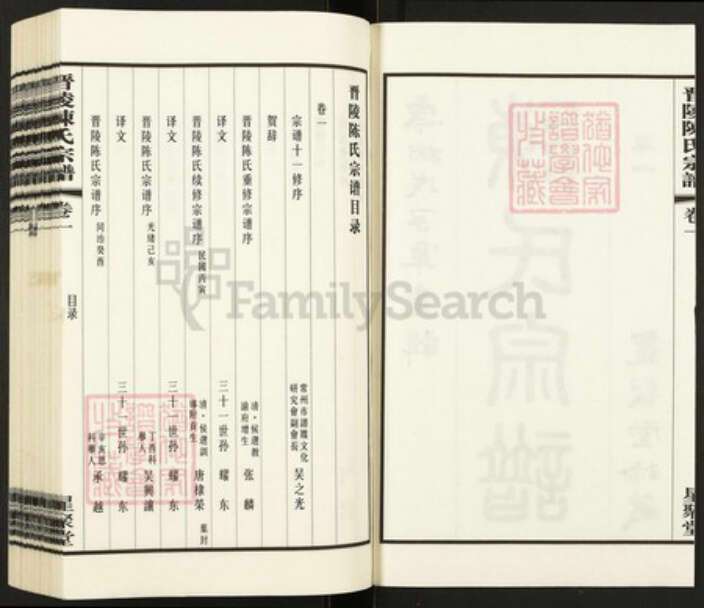 晋陵陈氏宗谱 卷一
星聚堂
晋陵陈氏宗谱目录
卷一
宗谱十一修序 常州市谱牒文化研究会副会长 吴之光
贺辞
晋陵陈氏重修宗谱序 清·候选教谕府增生 张麟
译文 三十一世孙 耀东
晋陵陈氏续修宗谱序 民国丙寅 清·候选训导附贡生 唐棣荣
译文 三十一世孙 耀东
晋陵陈氏宗谱序 光绪己亥 丁酉科举人 吴兴让
译文 三十一世孙 耀东
晋陵陈氏宗谱序 同治癸酉 辛亥恩科举人 承越
晋陵陳氏宗谱 卷一
目录
星聚堂
FamilySearch